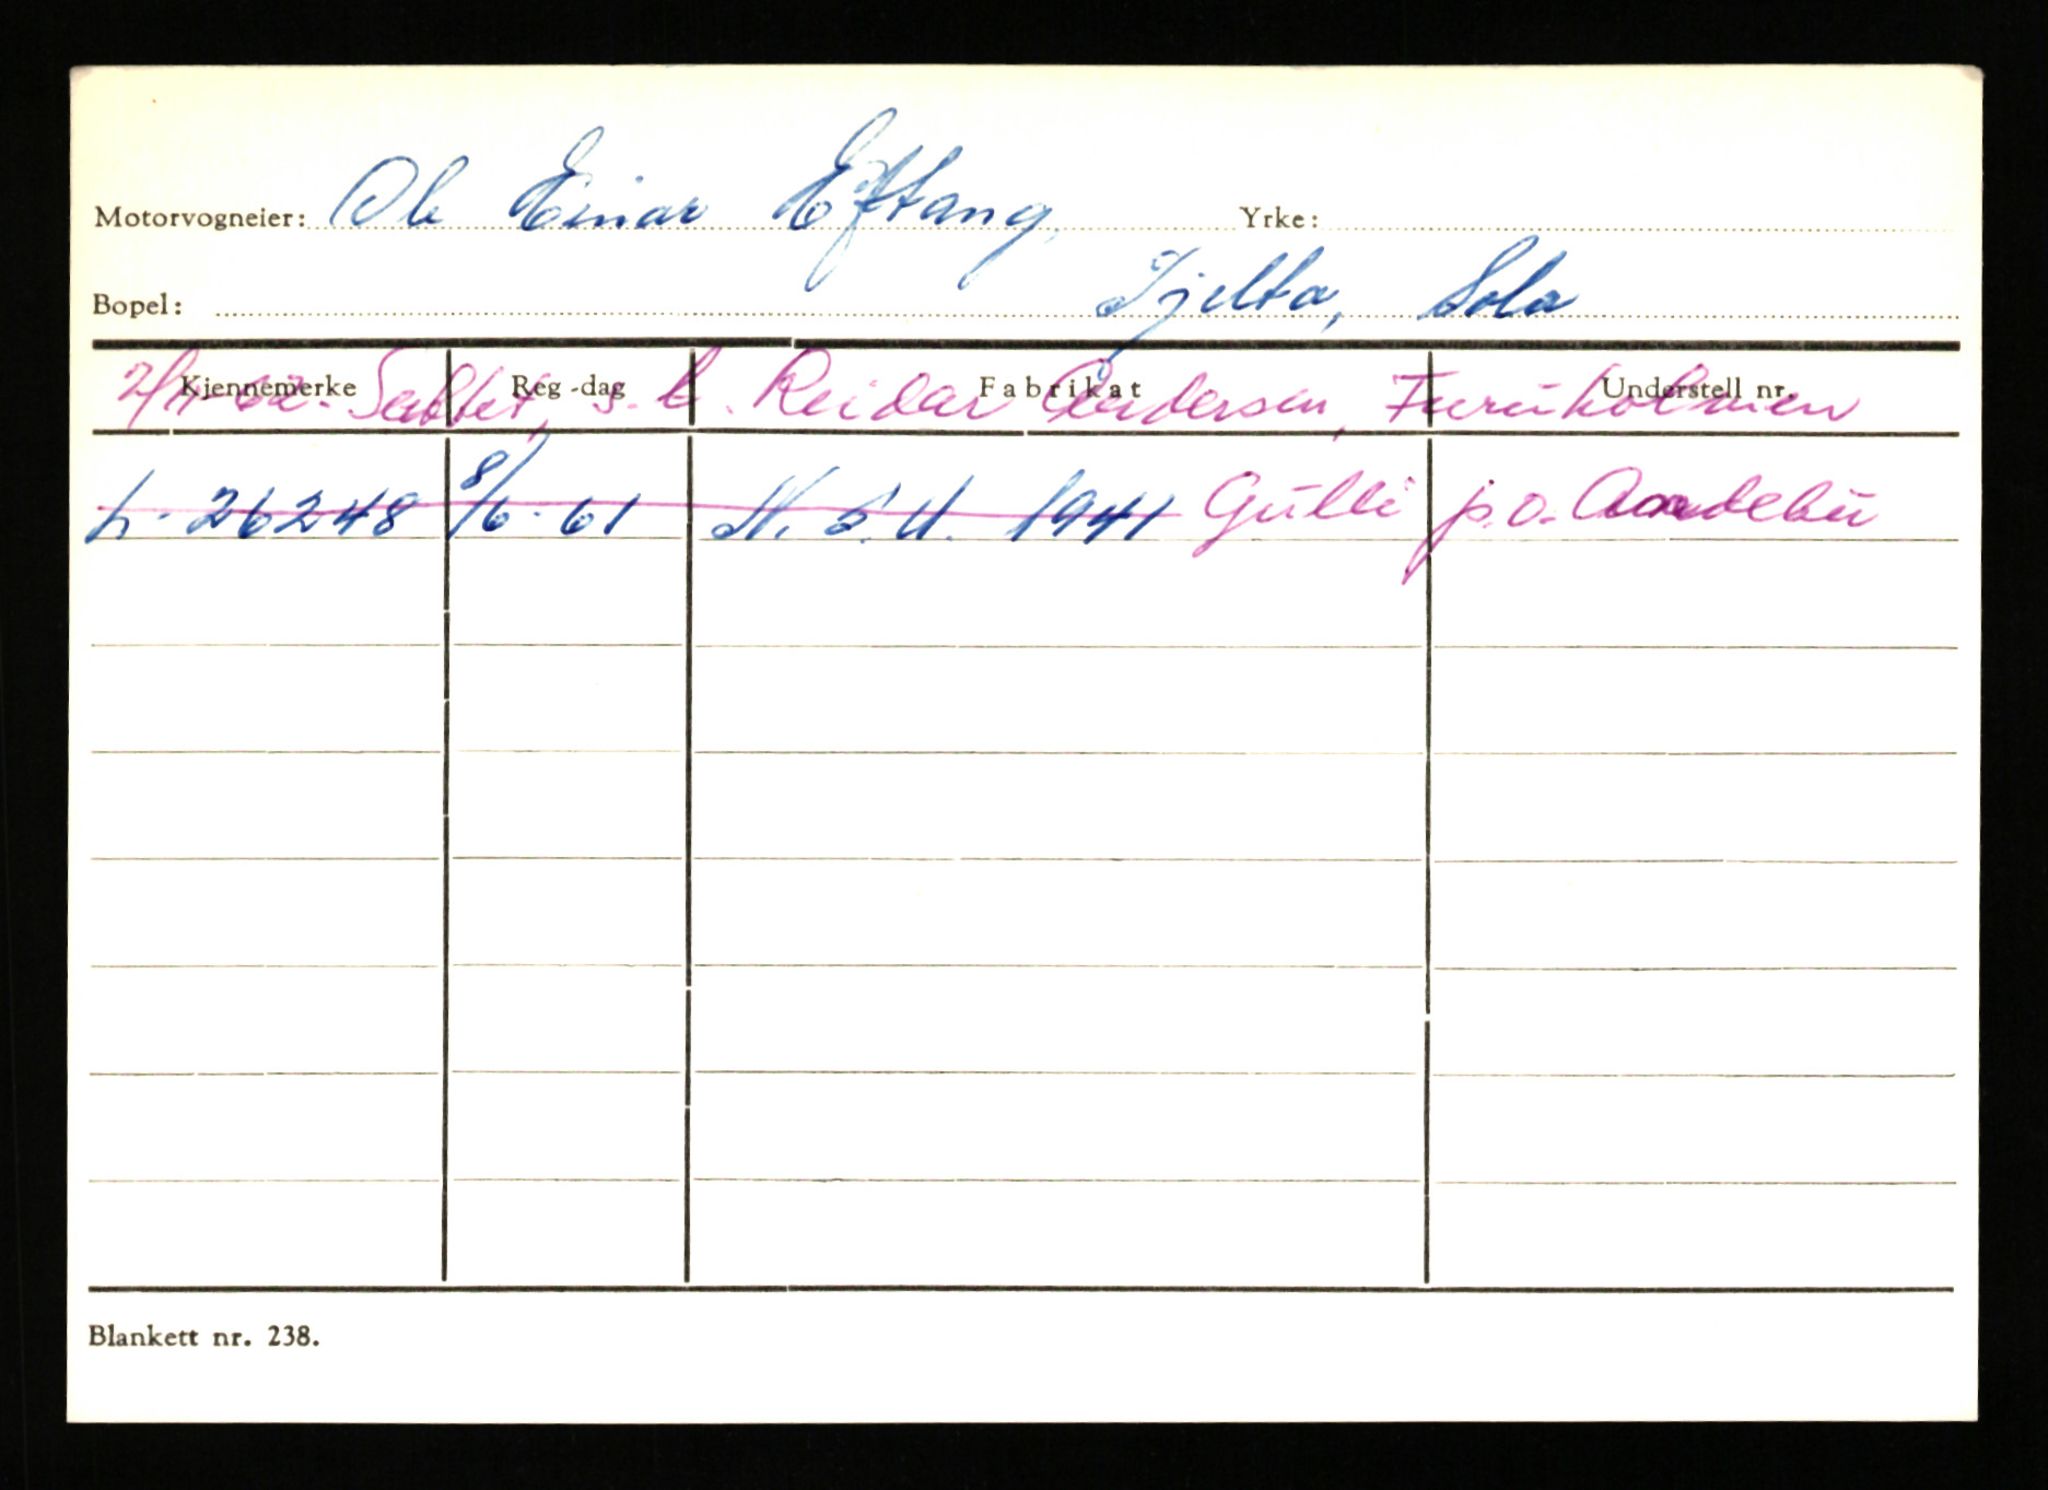 Motorvogneier: Ole Einar Eftang, Yrke:
Bopel: Tjelta, Sola
Kjennemerke Reg-dag Fabrikat Understell nr.
Solgt, s. k. Reidar Andersen, Furuholmen
L-26248 8/6-61 N.S.U. 1941 Gulli p.o. Andebu
Blankett nr. 238.